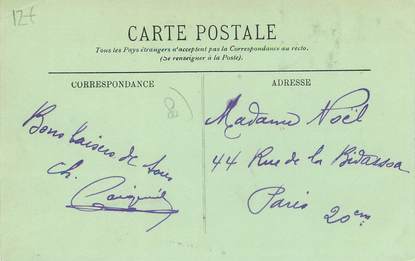 12f
CARTE POSTALE
Tous les Pays étrangers n'acceptent pas la Correspondance au recto.
(Se renseigner à la Poste).
CORRESPONDANCE
ADRESSE
Bons baisers de tous
Ch.
Madame Noël
44 Rue de la Bidassoa
Paris 20em